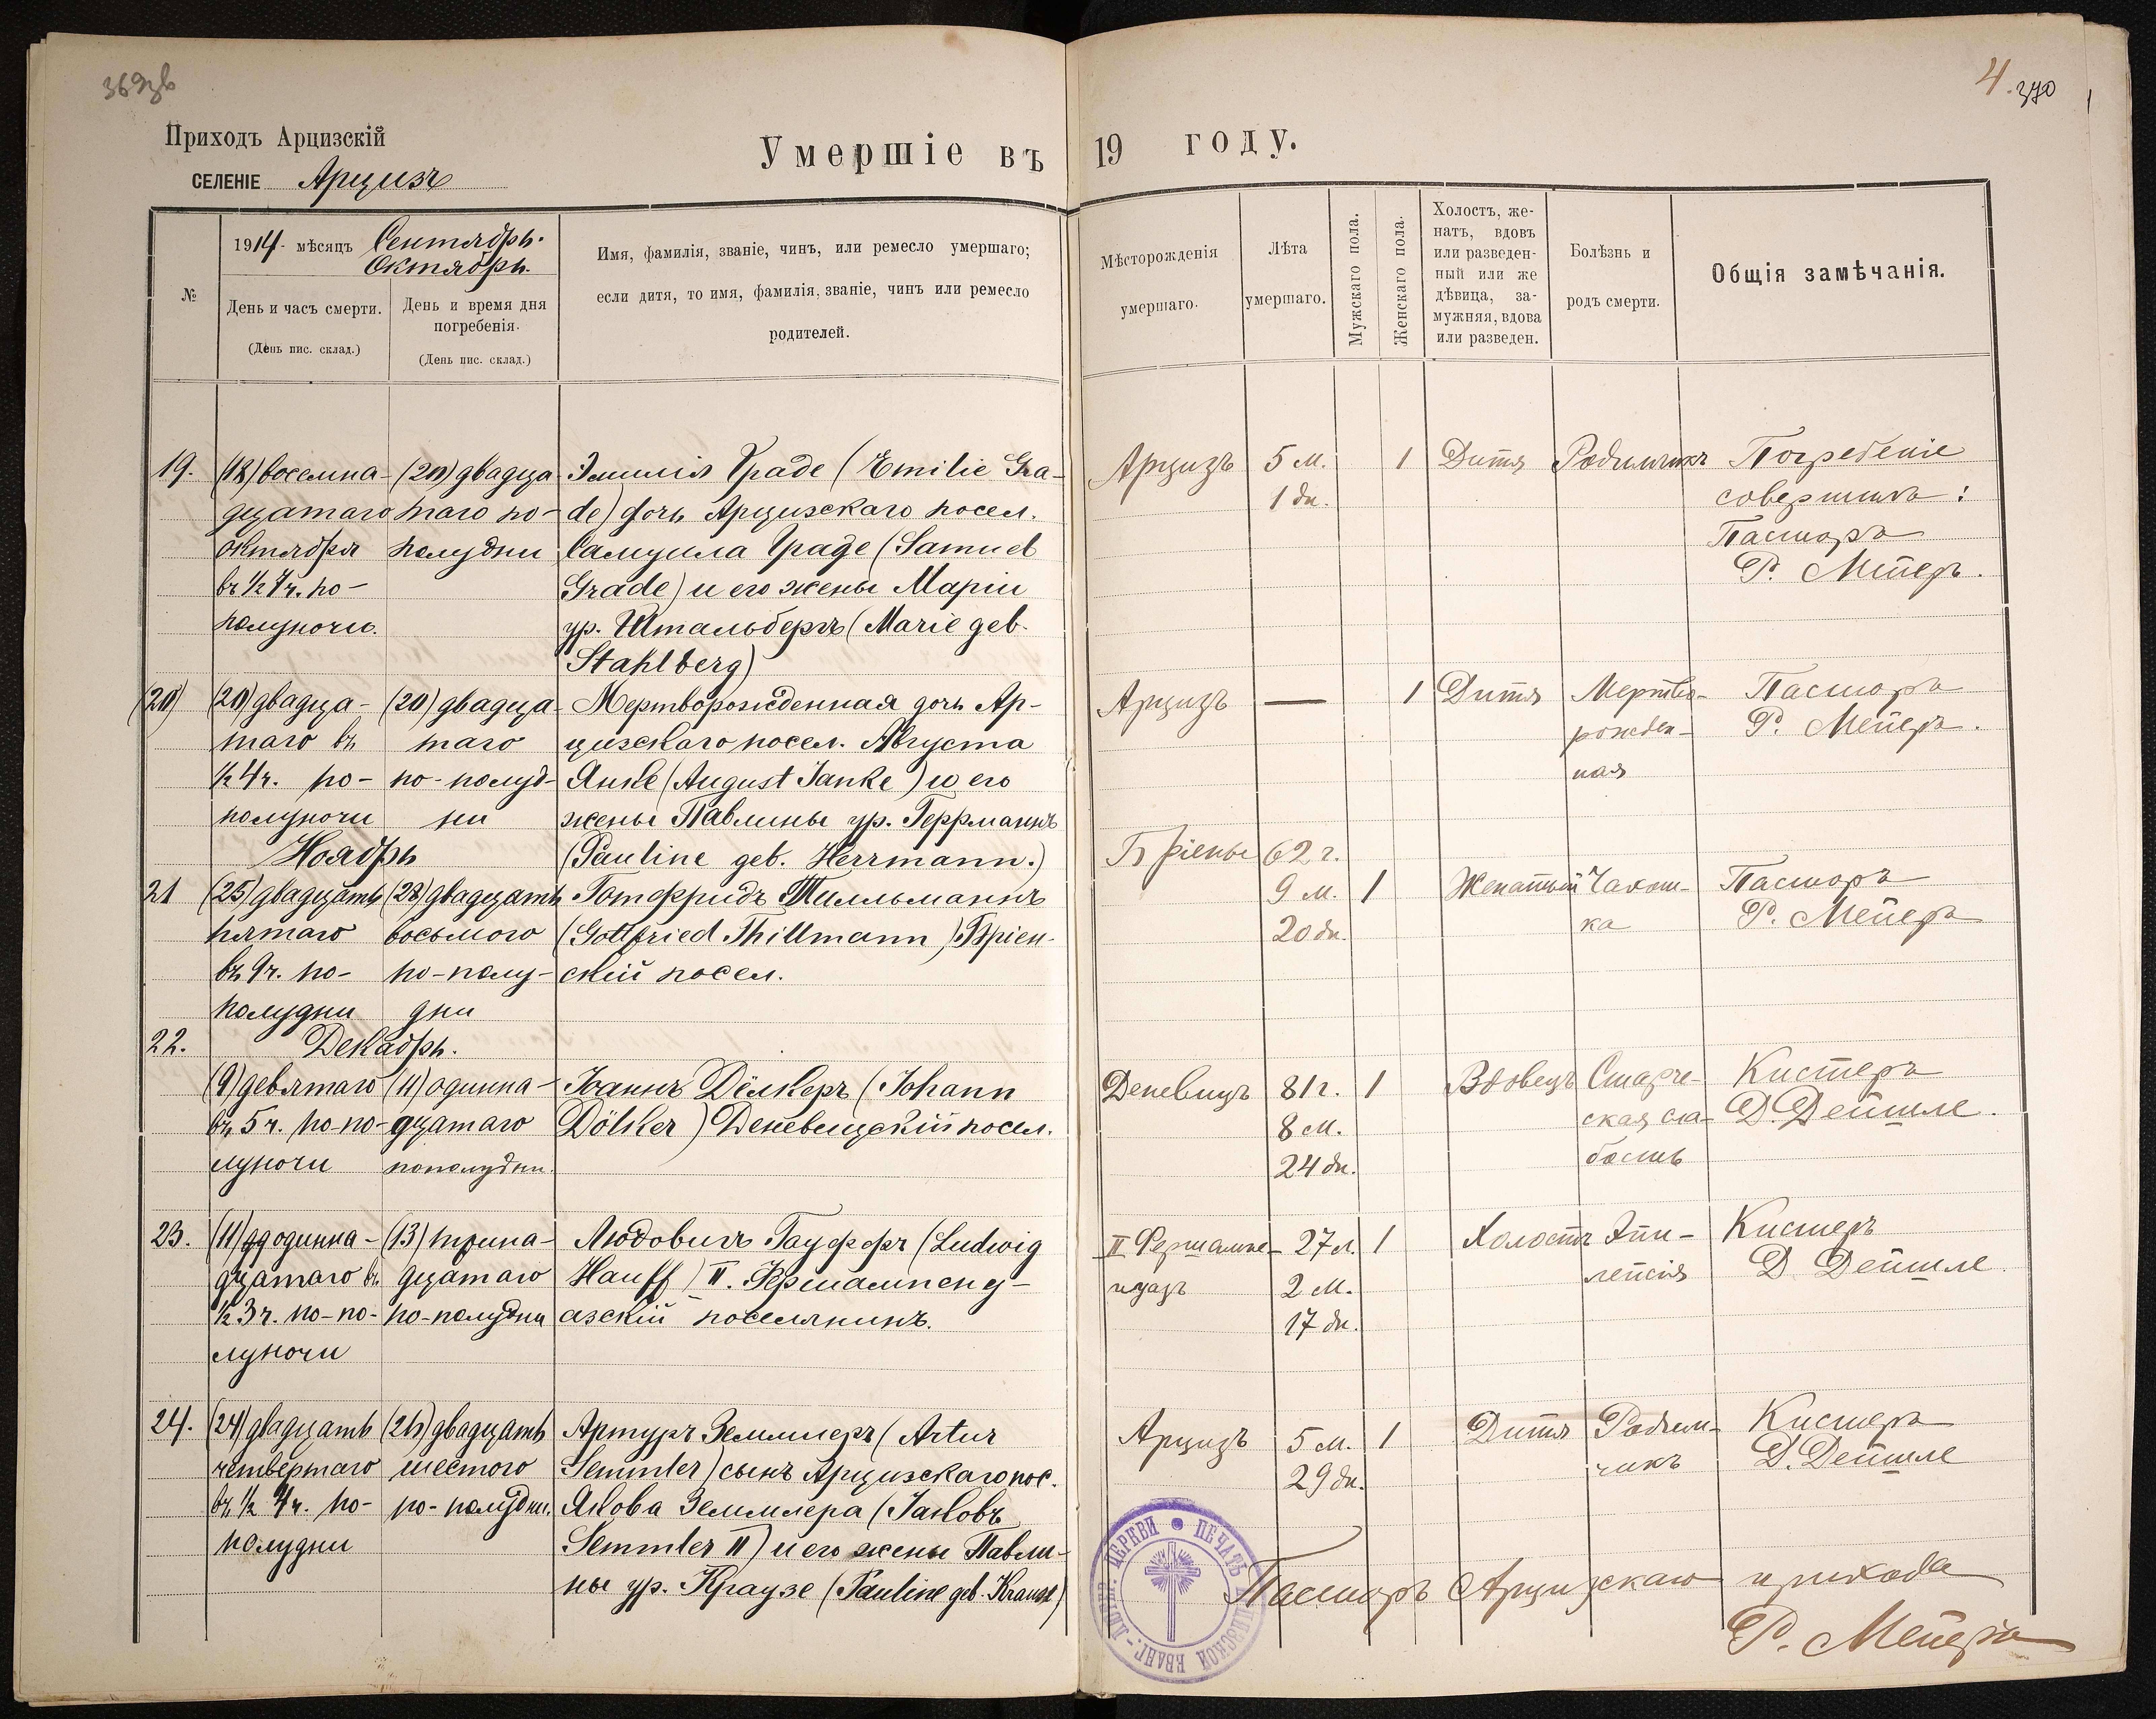 369зв
4. 370
Приходъ Арцизскій
СЕЛЕНІЕ Арцизъ
Умершіе въ 19 году.
№
1914 мѣсяцъ Сентябрь.
Октябрь.
День и часъ смерти.
(День пис. склад.)
День и время дня
погребенія.
(День пис. склад.)
Имя, фамилія, званіе, чинъ, или ремесло умершаго;
если дитя, то имя, фамилія, званіе, чинъ или ремесло
родителей.
Мѣсторожденія
умершаго.
Лѣта
умершаго.
Мужскаго пола.
Женскаго пола.
Холостъ, же-
натъ, вдовъ
или разведен-
ный или же
дѣвица, за-
мужняя, вдова
или разведен.
Болѣзнь и
родъ смерти.
Общія замѣчанія.
19.
(18) восемна-
дцатаго
октября
въ ½ 7 ч. по-
полуночи.
(20) двадца-
таго по-
полудни
Эмилія Граде (Emilie Gra-
de) дочь Арцизскаго посел.
Самуила Граде (Samuel
Grade) и его жены Маріи
ур. Штальбергъ (Marie geb.
Stahlberg)
Арцизъ
5 м.
1 дн.
1
Дитя
Родимчикъ
Погребеніе
совершилъ:
Пасторъ
Р. Мейеръ.
(20)
(20) двадца-
таго въ
½ 4 ч. по-
полуночи
(20) двадца-
таго
по-полуд-
ни
Мертворожденная дочь Ар-
цизскаго посел. Августа
Янке (August Janke) и его
жены Павлины ур. Геррманнъ
(Pauline geb. Herrmann.)
Арцизъ
—
1
Дитя
Мертво-
рожден-
ная
Пасторъ
Р. Мейеръ.
Ноябрь
21
(25) двадцать
пятаго
въ 9 ч. по-
полудни
(28) двадцать
восьмого
по-полу-
дни
Готфридъ Тилльманнъ
(Gottfried Thillmann) Бріен-
скій посел.
Бріенъ
62 г.
9 м.
20 дн.
1
Женатый
Чахот-
ка
Пасторъ
Р. Мейеръ
22.
Декабрь.
(9) девятаго
въ 5 ч. по-по-
луночи
(11) одинна-
дцатаго
пополудни.
Іоаннъ Дёлкеръ (Johann
Dölker) Деневицкій посел.
Деневицъ
81 г.
8 м.
24 дн.
1
Вдовецъ
Старче-
ская сла-
бость
Кистеръ
Д. Дейшле.
23.
(11) одинна-
дцатаго въ
½ 3 ч. по-по-
луночи
(13) трина-
дцатаго
по-полудни
Людовигъ Гауффъ (Ludwig
Hauff) II. Фершампену-
азскій поселянинъ.
II Фершампе-
нуазъ
27 л.
2 м.
17 дн.
1
Холостъ
Эпи-
лепсія
Кистеръ
Д. Дейшле.
24.
(24) двадцать
четвёртаго
въ ½ 4 ч. по-
полудни
(26) двадцать
шестого
по-полудни.
Артуръ Земмлеръ (Artur
Semmler) сынъ Арцизскаго пос.
Якова Земмлера (Jakob
Semmler II) и его жены Павли-
ны ур. Краузе (Pauline geb. Krause)
Арцизъ
5 м.
29 дн.
1
Дитя
Родим-
чикъ
Кистеръ
Д. Дейшле
Пасторъ Арцизскаго прихода
Р. Мейеръ
ПЕЧАТЬ АРЦИЗСКОЙ ЕВАНГ.-ЛЮТЕР. ЦЕРКВИ